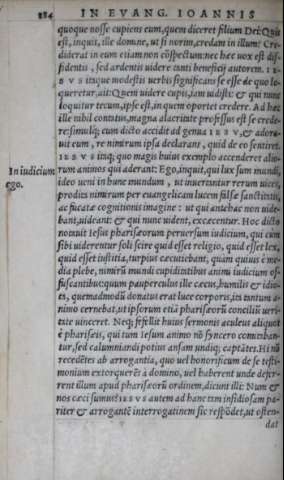 284 IN EVANG. IOANNIS
quoque nosse cupiens eum, quem diceret filium Dei: Quis
est, inquit, ille domine, ut si norim, credam in illum? Cre-
diderat in eum etiam non cōspectum: nec hæc uox est dif-
fidentis, sed ardentis uidere tanti beneficij autorem. IE-
SVS itaque modestis uerbis significans se esse de quo lo-
queretur, ait: Quem uidere cupis, iam uidisti: & qui nunc
loquitur tecum, ipse est, in quem oportet credere. Ad hæc
ille nihil contatus, magna alacritate professus est se crede
re: simulq; cum dicto accidit ad genua IESV, & adora-
uit eum, re nimirum ipsa declarans, quid de eo sentiret.
IESVS inq; quo magis huius exemplo accenderet alio-
In iudicium
rum animos qui aderant: Ego, inquit, qui lux sum mundi,
ego.
ideo ueni in hunc mundum, ut inuertantur rerum uices,
proditis nimirum per euangelicam lucem falsæ sanctitatis,
ac fucatæ cognitionis imagine: ut qui antehac non uide-
bant, uideant: & qui nunc uident, excæcentur. Hoc dicto
notauit Iesus pharisæorum peruersum iudicium, qui cum
sibi uiderentur soli scire quid esset religio, quid esset lex,
quid esset iustitia, turpius cæcutiebant, quàm quiuis è me-
dia plebe, nimirū mundi cupiditatibus animi iudicium of-
fuscantibus: quum pauperculus ille cæcus, humilis & idio-
tes, quemadmodū donatus erat luce corporis, ita tantum a-
nimo cernebat, ut ipsorum etiā pharisæorū conciliū uerì-
tate uinceret. Neq; fefellit huius sermonis aculeus aliquot
è pharisæis, qui tum Iesum animo nō syncero comitaban-
tur, sed calumniandi potius ansam undiq; captātes. Hi nō
recedētes ab arrogantia, quo uel honorificum de se testi-
monium extorquerēt à domino, uel haberent unde defer-
rent illum apud pharisæorū ordinem, dicunt illi: Num &
nos cæci sumus? IESVS autem ad hanc tam insidiosam pa-
riter & arrogantē interrogatinem sic respōdet, ut osten-
dat